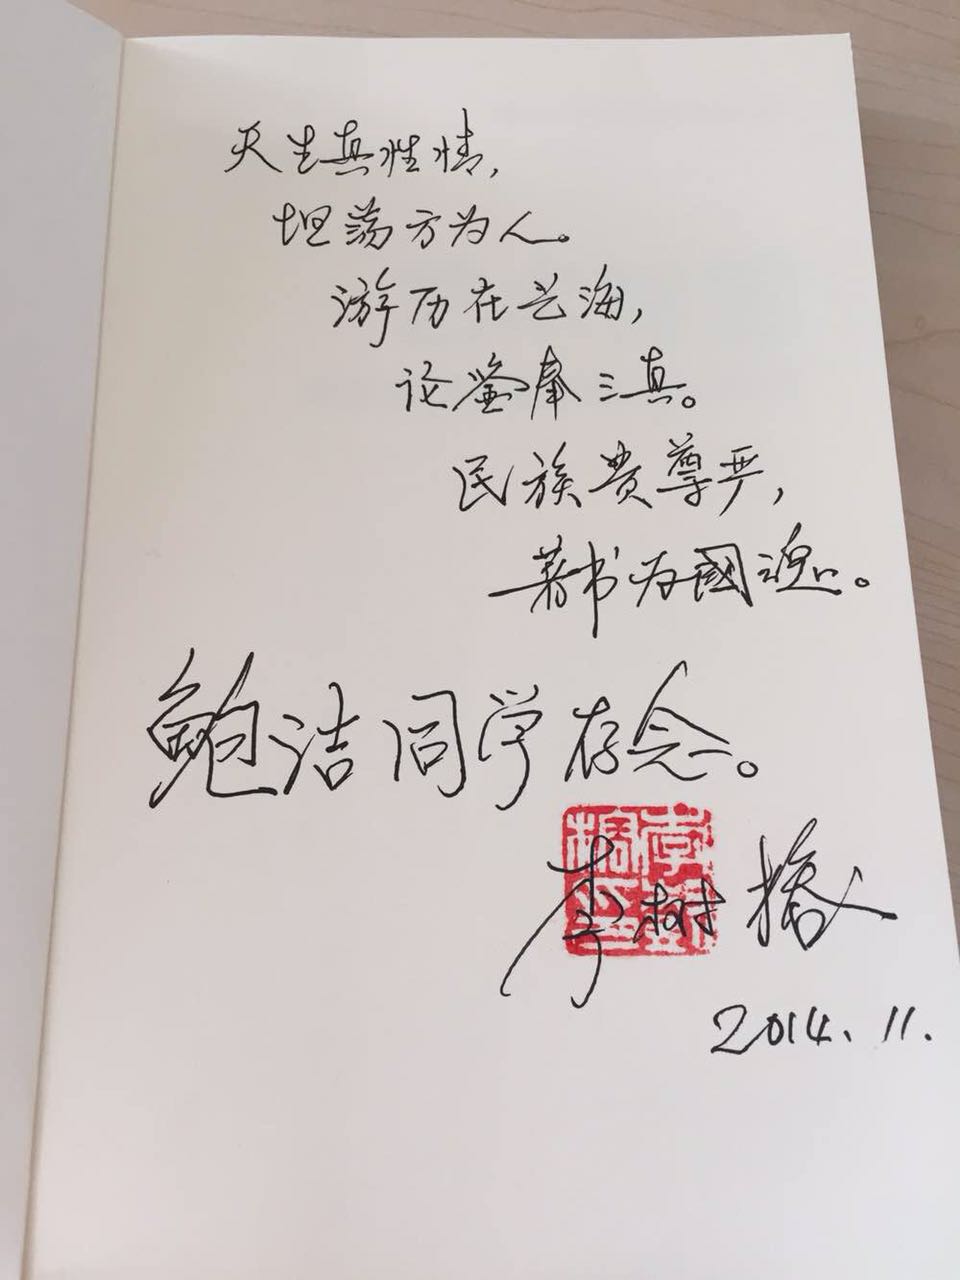 天生真性情，
坦荡方为人。
游历在艺海，
论鉴奉三真。
民族贵尊严，
著书为國魂。
鲍洁同学存念。
李树
2014.11.